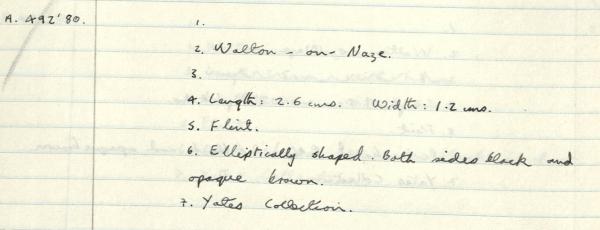 A. 492'80. 1.
2. Walton - on - Naze.
3.
4. Length: 2.6 cms. Width: 1.2 cms.
5. Flint.
6. Elliptically shaped. Both sides black and
opaque brown.
7. Yates Collection.